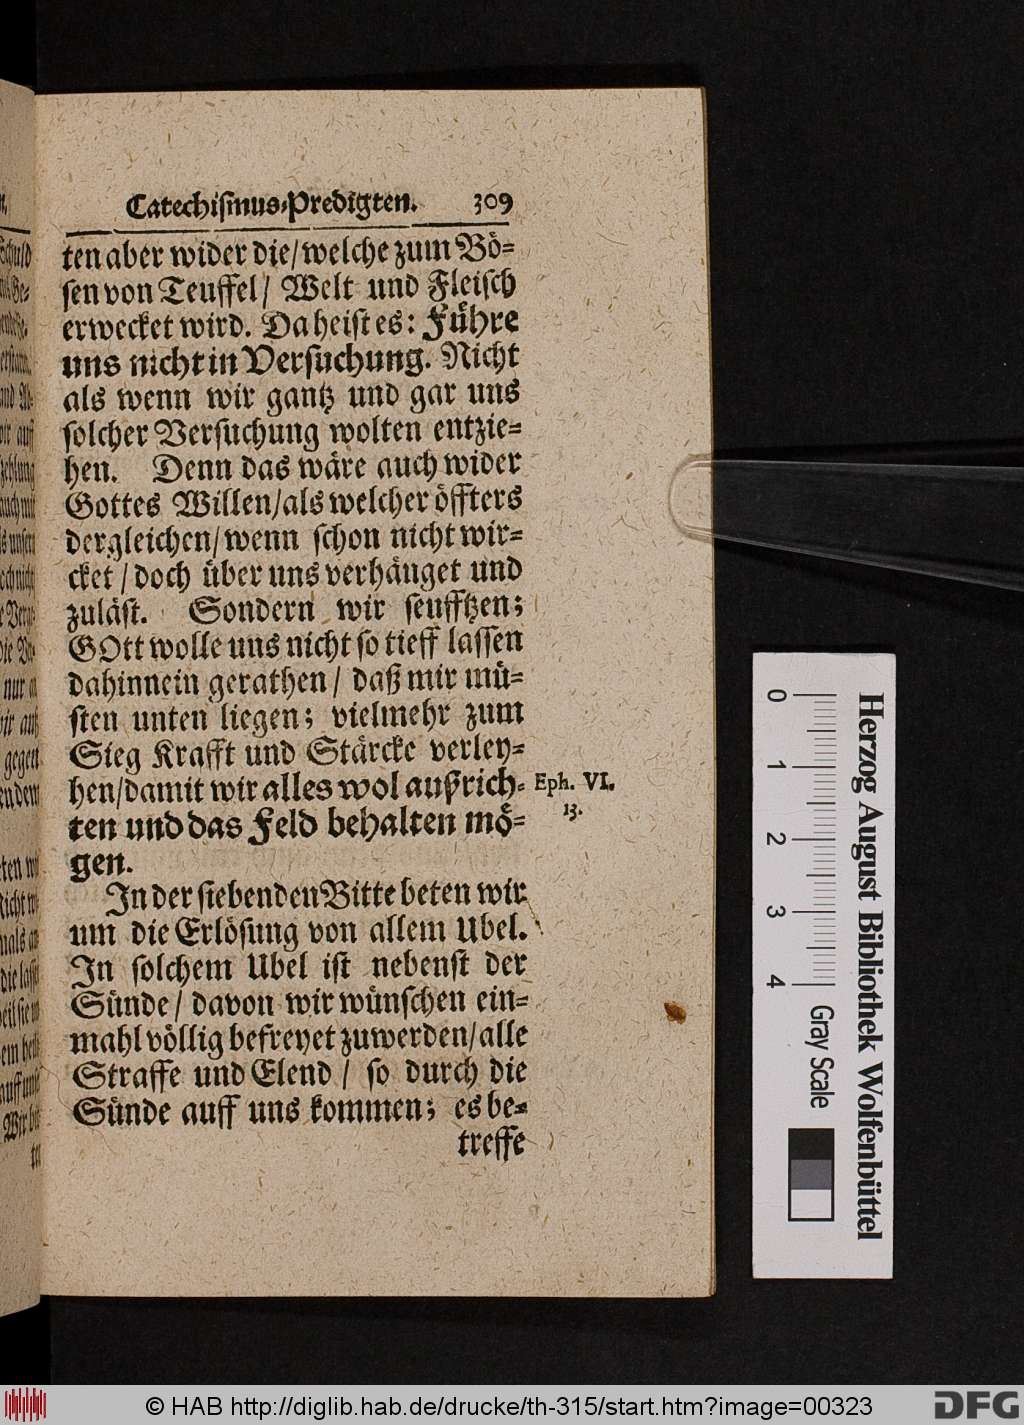 Catechiſmus-Predigten. 309
ten aber wider die/ welche zum Bö-
ſen von Teuffel/ Welt und Fleiſch
erwecket wird. Da heiſt es: Führe
uns nicht in Verſuchung. Nicht
als wenn wir gantz und gar uns
ſolcher Verſuchung wolten entzie-
hen. Denn das wäre auch wider
Gottes Willen/ als welcher öffters
dergleichen/ wenn ſchon nicht wir-
cket / doch über uns verhänget und
zuläſt. Sondern wir ſeufftzen;
GOtt wolle uns nicht ſo tieff laſſen
dahinnein gerathen/ daß mir mü-
ſten unten liegen; vielmehr zum
Sieg Krafft und Stärcke verley-
hen/ damit wir alles wol außrich-
ten und das Feld behalten mö-
gen.
Eph. VI.
13.
In der ſiebenden Bitte beten wir
um die Erlöſung von allem Ubel.
In ſolchem Ubel iſt nebenſt der
Sünde/ davon wir wünſchen ein-
mahl völlig befreyet zuwerden/ alle
Straffe und Elend / ſo durch die
Sünde auff uns kommen; es be-
treffe
Herzog August Bibliothek Wolfenbüttel
0 1 2 3 4 Gray Scale
© HAB http://diglib.hab.de/drucke/th-315/start.htm?image=00323
DFG